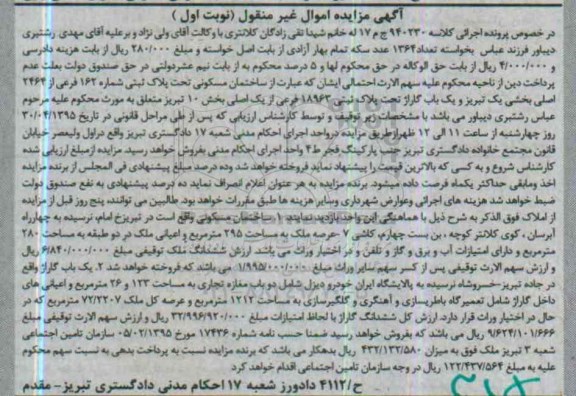 آگهی مزایده اموال غیر منقول (نوبت اول )
در خصوص پرونده اجرائی کلاسه ۹۴۰۲۳۰ ج م ۱۷ له خانم شیدا تقی زادگان کلانتری با وکالت آقای ولی نژاد و برعلیه آقای مهدی رشتبری
دیباور فرزند عباس بخواسته تعداد۱۳۶۴ عدد سکه تمام بهار آزادی از بابت اصل خواسته و مبلغ ۲۸۰/۰۰۰ ریال از بابت هزینه دادرسی
و ۴/۰۰۰/۰۰۰ ریال از بابت حق الوکاله در حق محکوم لها و ۵ درصد محکوم به از بابت نیم عشردولتی در حق صندوق دولت بعلت عدم
پرداخت دین از ناحیه محکوم علیه سهم الارث احتمالی ایشان که عبارت از ساختمان مسکونی تحت پلاک ثبتی شماره ۱۶۲ فرعی از ۲۴۶۴
اصلی بخشی یک تبریز و یک باب گاراژ تحت پلاک ثبتی ۱۸۹۶۲ فرعی از یک اصلی بخش ۱۰ تبریز متعلق به مورث محکوم علیه مرحوم
عباس رشتبری دیباور می باشد با مشخصات زیر توقیف و توسط کارشناس ارزیابی که پس از طی مراحل قانونی در تاریخ ۳۰/۰۴/۱۳۹۵
روز چهارشنبه از ساعت ۱۱ الی ۱۲ ظهرازطریق مزایده درواحد اجرای احکام مدنی شعبه ۱۷ دادگستری تبریز واقع دراول ولیعصر خیابان
قانون مجتمع خانواده دادگستری تبریز جنب پارکینگ فجر ط ۴ واحد اجرای احکام مدنی بفروش خواهد رسید. مزایده ازمبلغ ارزیابی شده
کارشناس شروع و به کسی که بالاترین قیمت را پیشنهاد نماید فروخته خواهد شد وده درصد مبلغ پیشنهادی فی المجلس از برنده مزایده
اخذ ومابقی حداکثر یکماه فرصت داده میشود. برنده مزایده به هر عنوان اعلام انصراف نماید ده درصد پیشنهادی به نفع صندوق دولت
ضبط خواهد شد هزینه های اجرائی وعوارض شهرداری وسایر هزینه ها طبق مقررات خواهد بود. طالبین می توانند پنج روز قبل از مزایده
از املاک فوق الذکر به شرح ذیل با هماهنگی این واحد بازدید نمایند ۱- ساختمان مسکونی واقع است در تبریزخ امام، نرسیده به چهارراه
آبرسان ، کوی کلانتر کوچه ، بن بست چهارم، کاشی ۷ -عرصه ملک به مساحت ۲۹۵ مترمربع و اعیانی ملک در دو طبقه به مساحت ۲۸۰
مترمربع و دارای امتیازات آب و برق و گاز و تلفن و در اختیار وراث می باشد. ارزش ششدانگ ملک توقیفی مبلغ ۶/۸۴۰/۰۰۰/۰۰۰ ریال
و ارزش سهم الارث توقیفی پس از کسر سهم سایر وراث مبلغ ۱/۹۹۵/۰۰۰/۰۰۰ می باشد که فروخته خواهد شد ۲. یک باب گاراژ واقع
در جاده تبریز-خسروشاه نرسیده به پالایشگاه ایران خودرو دیزل شامل دو باب مغازه تجاری به مساحت ۱۲۳ و ۲۶ مترمربع و اعیانی های
داخل گاراژ شامل تعمیرگاه باطریسازی و آهنگری و گلگیرسازی به مساحت ۱۲۱۲ مترمربع و عرصه کل ملک ۷۲/۲۲۰۷ مترمربع که در
حال در اختیار وراث قرار دارد. ارزش کل ششدانگ گاراژ با لحاظ امتیازات مبلغ ۳۲/۹۹۶/۹۲۰/۰۰۰ ریال و ارزش سهم الارث توقیفی مبلغ
۹/۶۲۴/۱۰۱/۶۶۶ ریال می باشد که بفروش خواهد رسید ضمنا حسب نامه شماره ۱۷۴۳۶ مورخ ۰۵/۰۲/۱۳۹۵ سازمان تامین اجتماعی
شعبه ۳ تبریز ملک فوق به میزان ۴۳۲/۱۳۲/۵۸۰ ریال بدهکار می باشد که برنده مزایده نسبت به پرداخت بدهی به نسبت سهم محکوم
علیه به مبلغ ۱۲۲/۴۳۷/۵۶۴ ریال در وجه سازمان تامین اجتماعی اقدام خواهد کرد
ح/۴۱۱۲ دادورز شعبه ۱۷ احکام مدنی دادگستری تبریز- مقدم